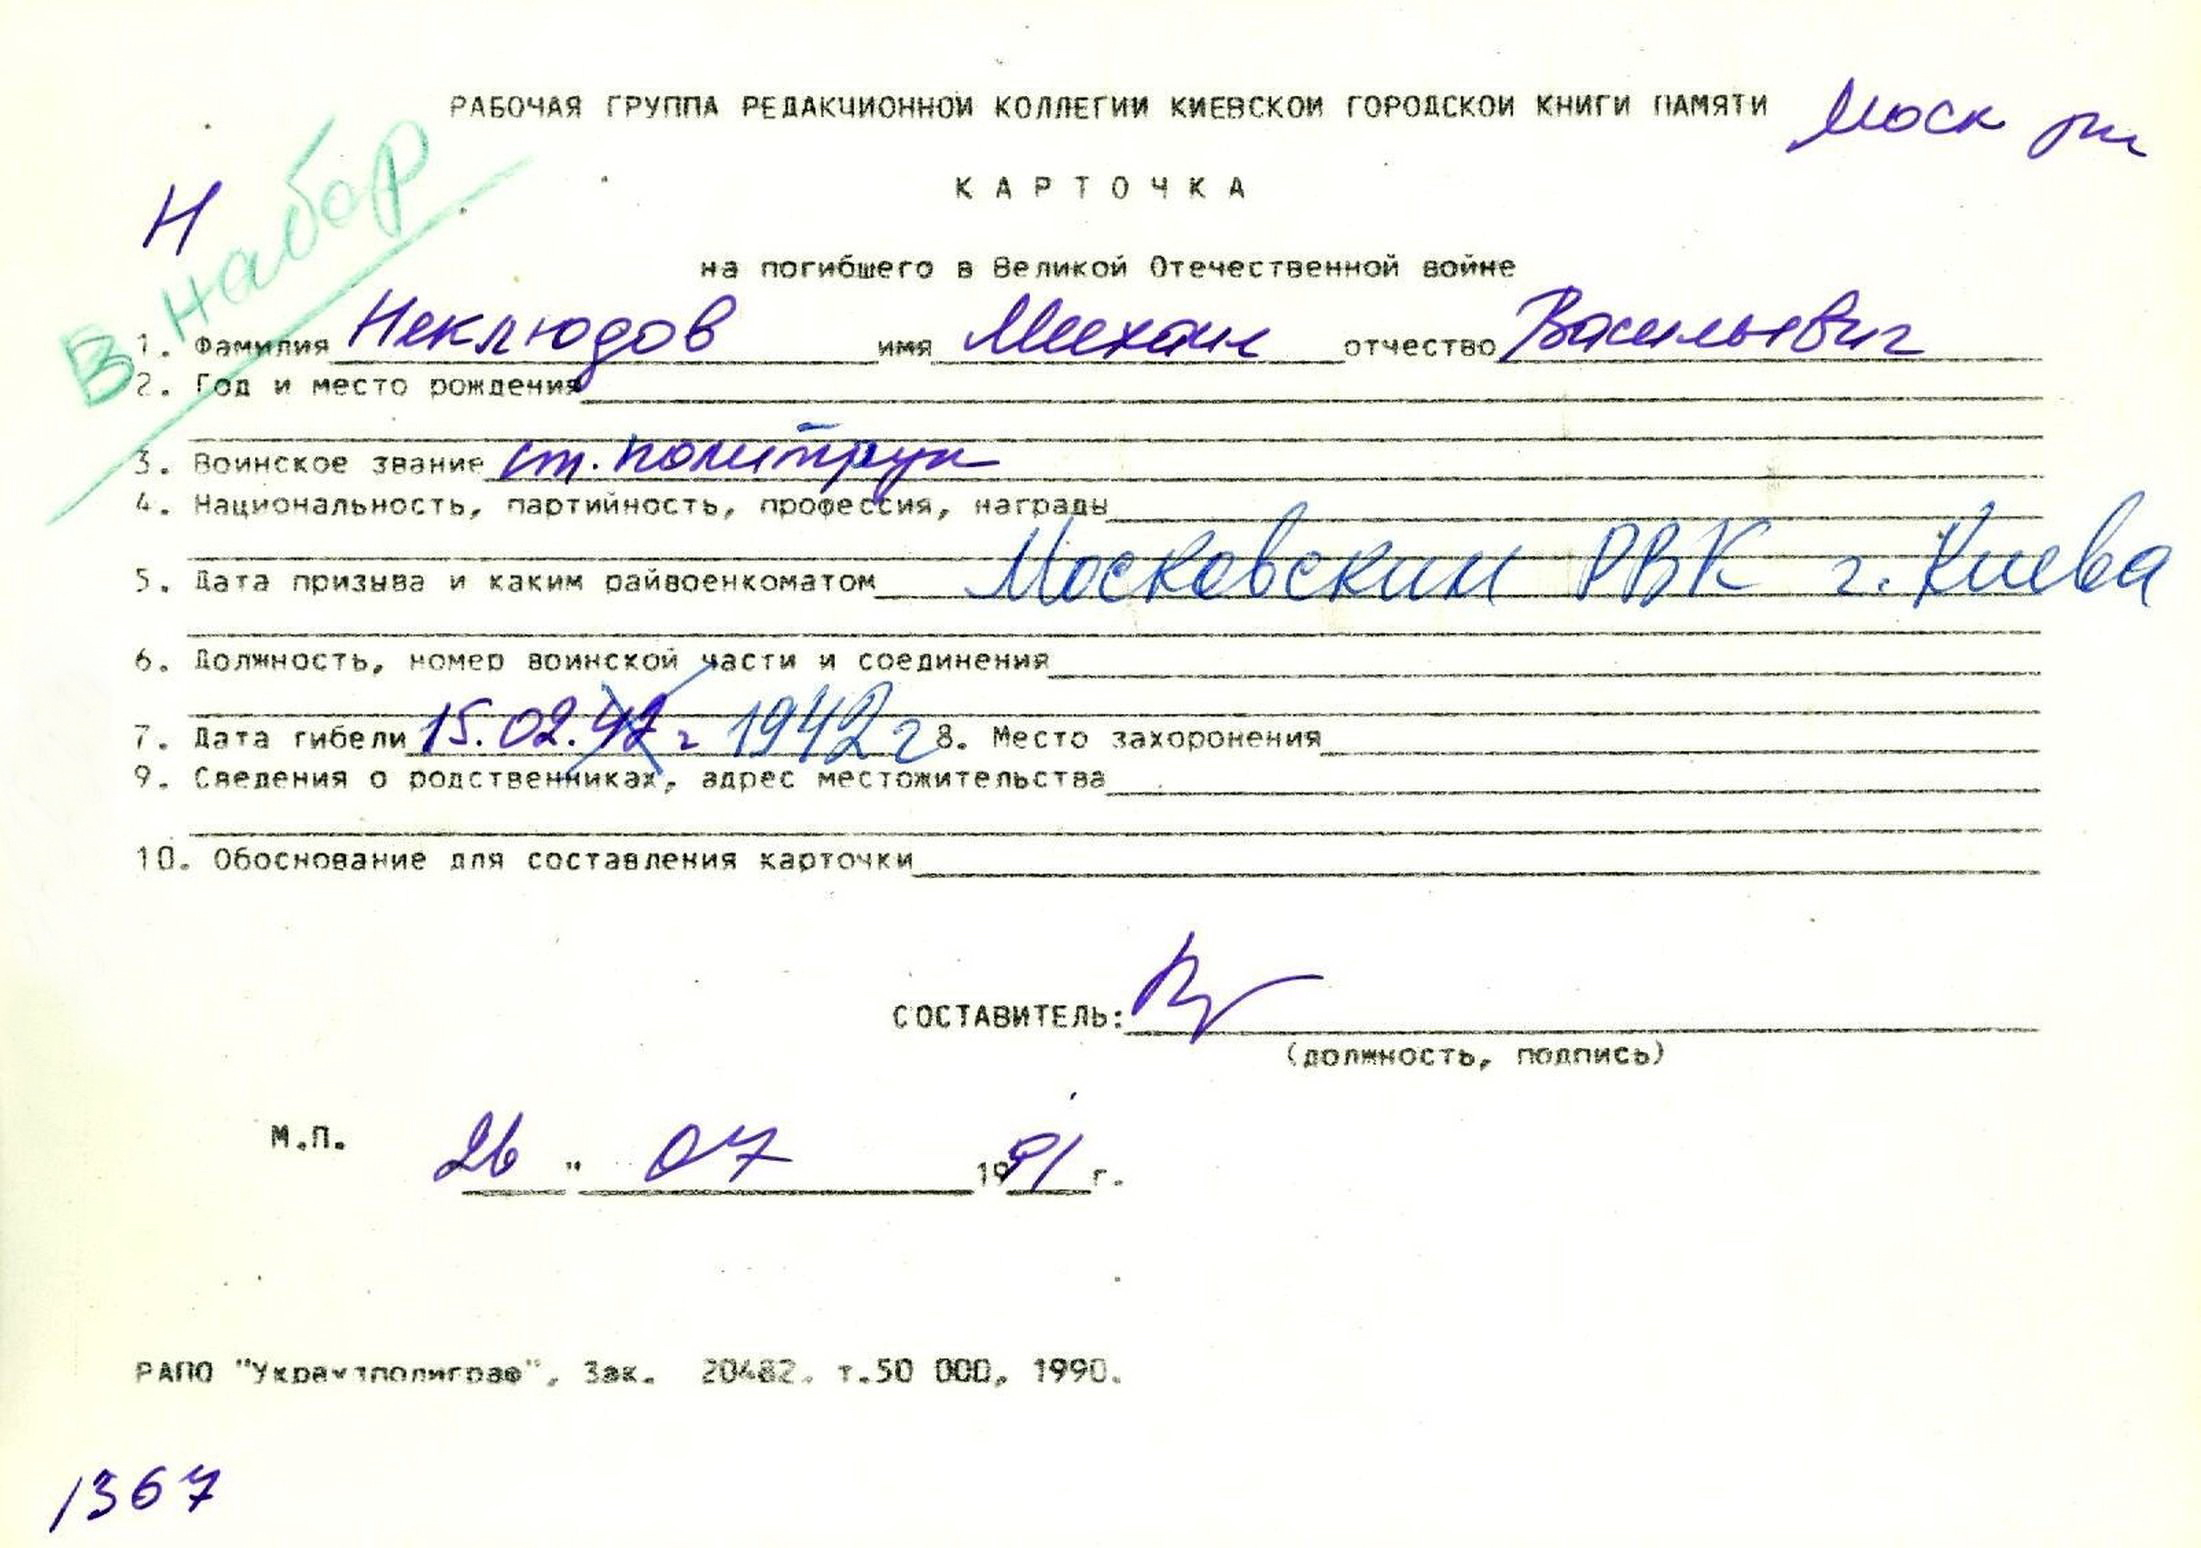 РАБОЧАЯ ГРУППА РЕДАКЦИОННОЙ КОЛЛЕГИИ КИЕВСКОЙ ГОРОДСКОЙ КНИГИ ПАМЯТИ Моск
Н
В набор
КАРТОЧКА
на погибшего в Великой Отечественной войне
1. Фамилия Неклюдов имя Михаил отчество Васильевич
2. Год и место рождения
3. Воинское звание ст. политрук
4. Национальность, партийность, профессия, награды
5. Дата призыва и каким райвоенкоматом Московский РВК г. Киева
6. Должность, номер воинской части и соединения
7. Дата гибели 15.02.42 г 1942 г 8. Место захоронения
9. Сведения о родственниках, адрес местожительства
10. Обоснование для составления карточки
СОСТАВИТЕЛЬ:
(должность, подпись)
М.П.
26 " 07 1991 г.
РАПО "Укрвузполиграф", Зак. 20482. т.50 000, 1990.
1367